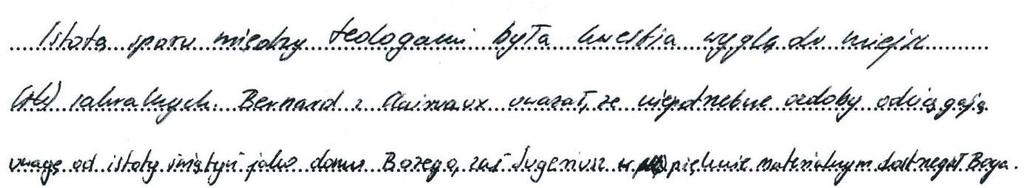 Istotą sporu między teologami była kwestia wyglądu miejsc
sakralnych. Bernard z Clairvaux uważał, że niepotrzebne ozdoby odciągają
uwagę od istoty świątyni jako domu Bożego, zaś Sugeriusz w pięknie materialnym dostrzegał Boga.